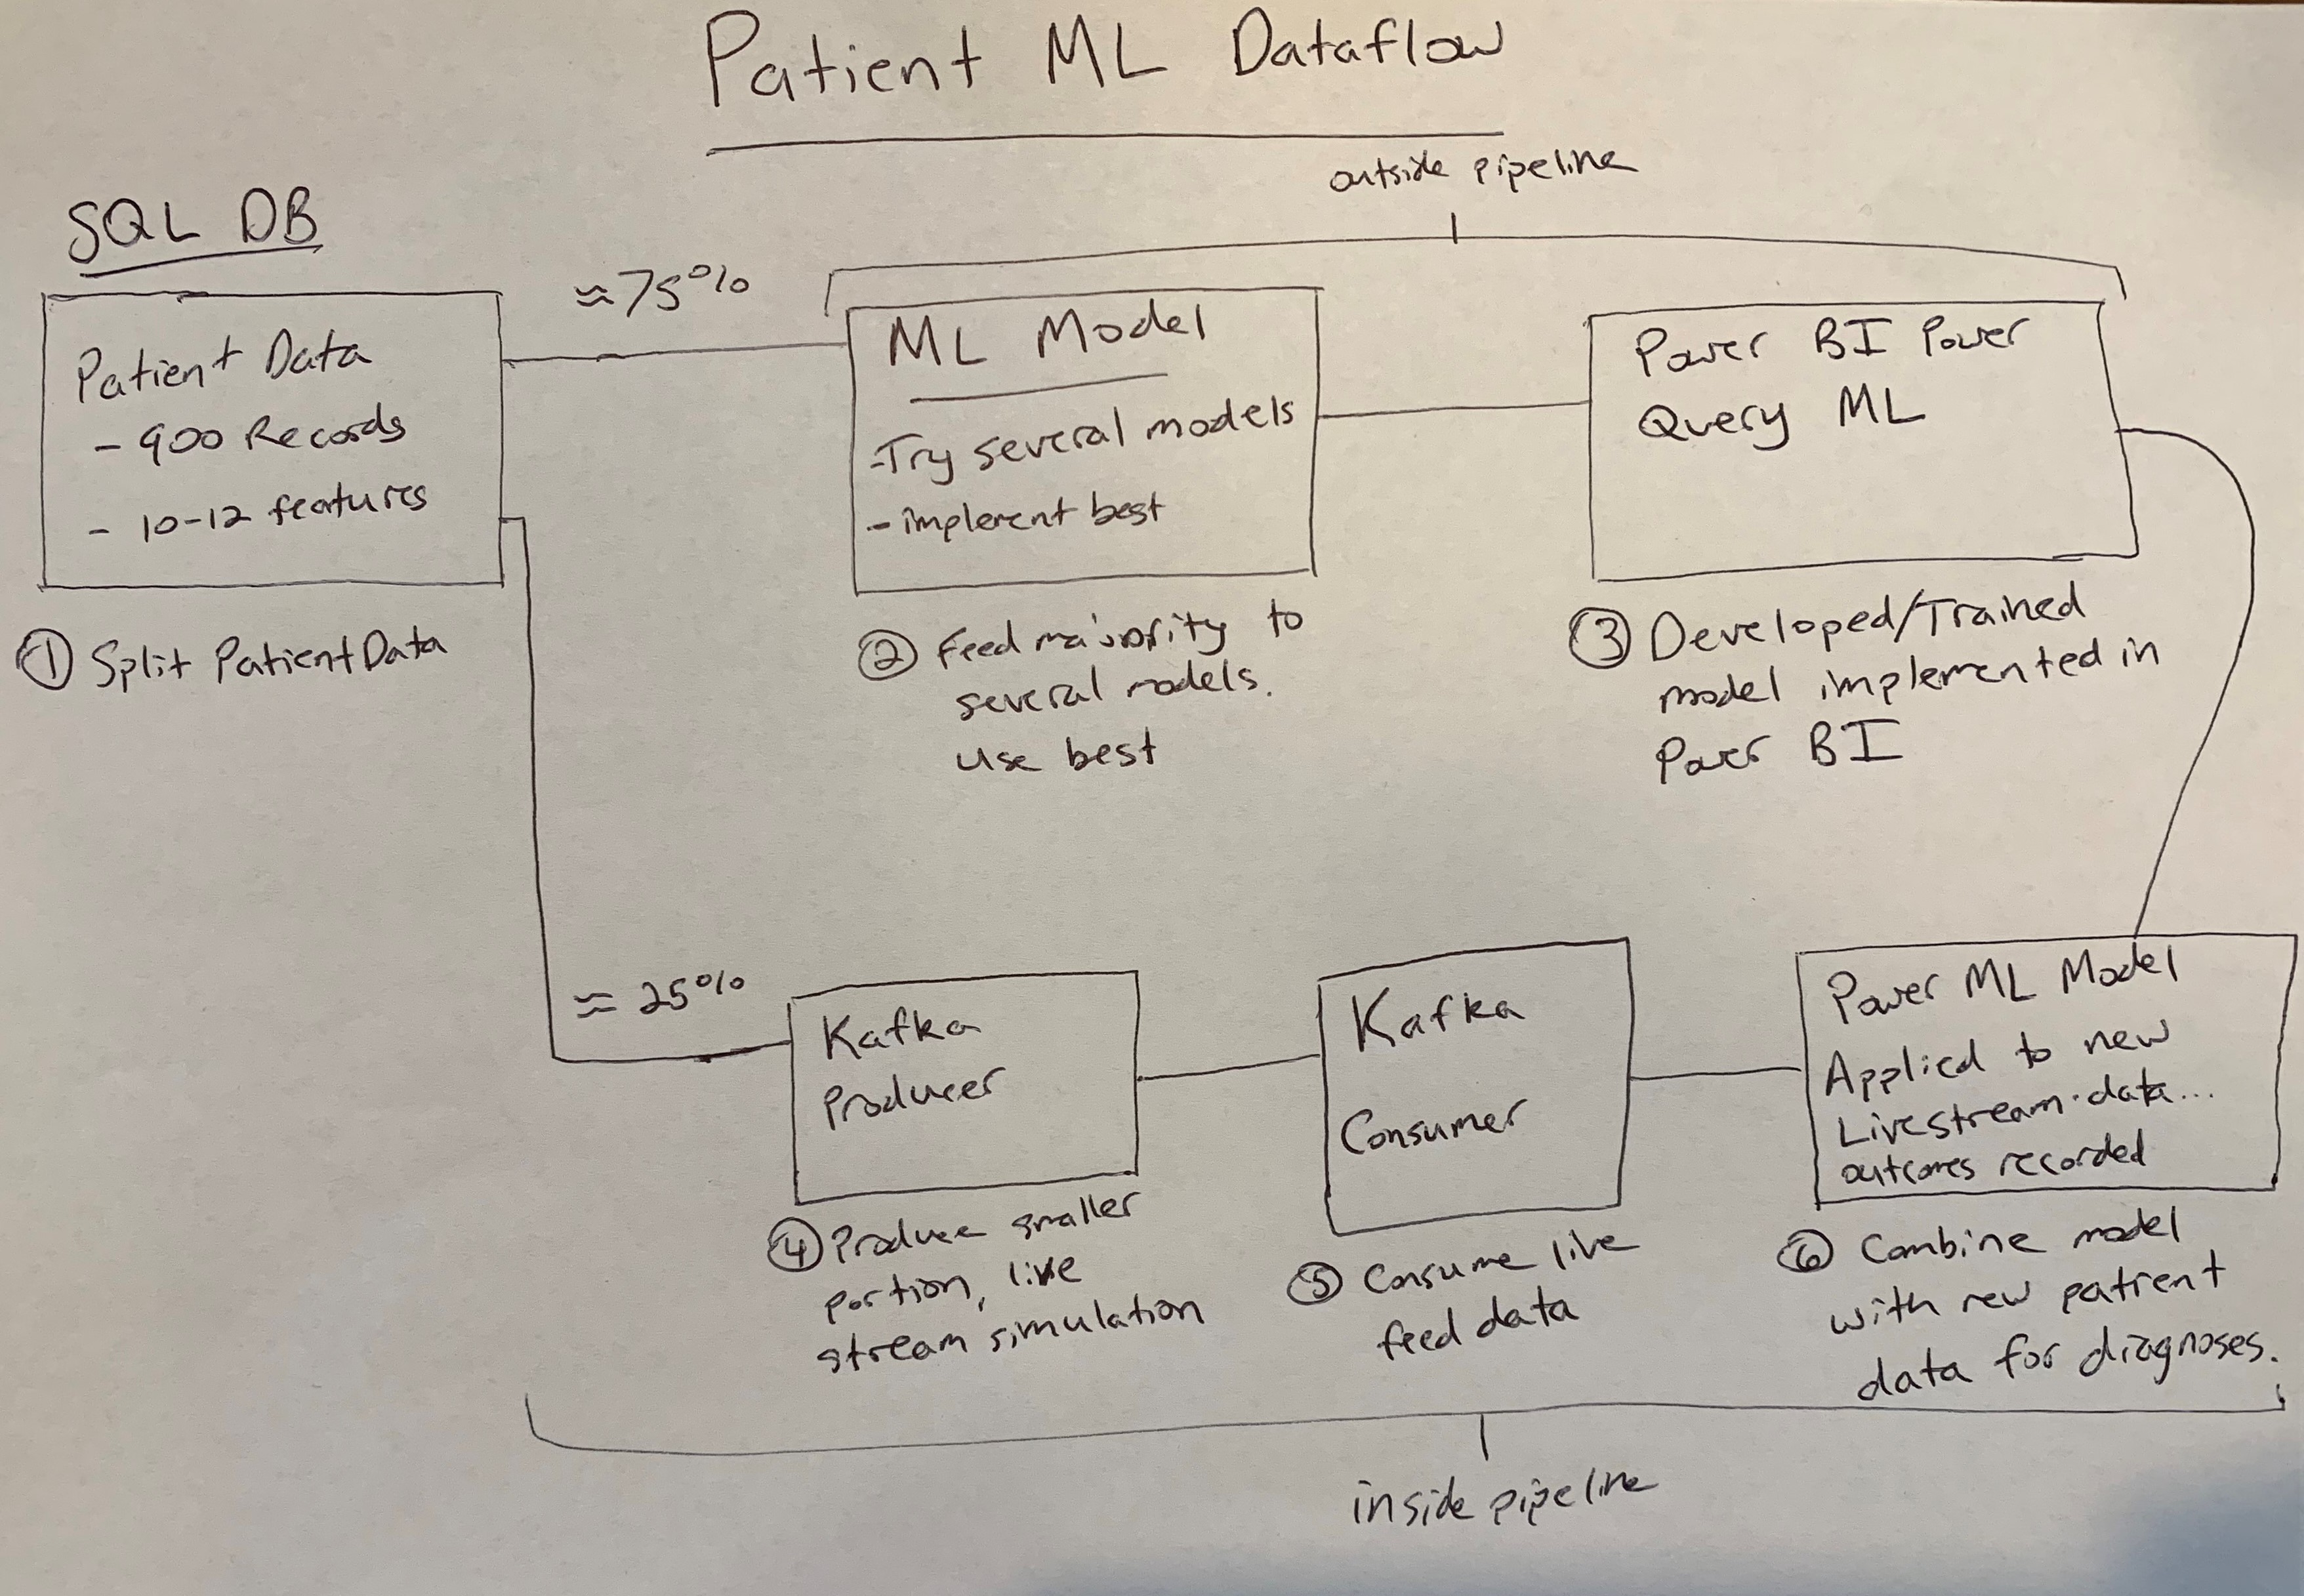 Patient ML Dataflow
outside pipeline
SQL DB
≈75%
Patient Data
- 900 Records
- 10-12 features
① Split Patient Data
ML Model
-Try several models
- implement best
② Feed majority to
several models.
use best
Power BI Power
Query ML
③ Developed/Trained
model implemented in
Power BI
≈ 25%
Kafka
Producer
④ Produce smaller
portion, live
stream simulation
Kafka
Consumer
⑤ Consume live
feed data
Power ML Model
Applied to new
Livestream data...
outcomes recorded
⑥ Combine model
with new patient
data for diagnoses.
inside pipeline